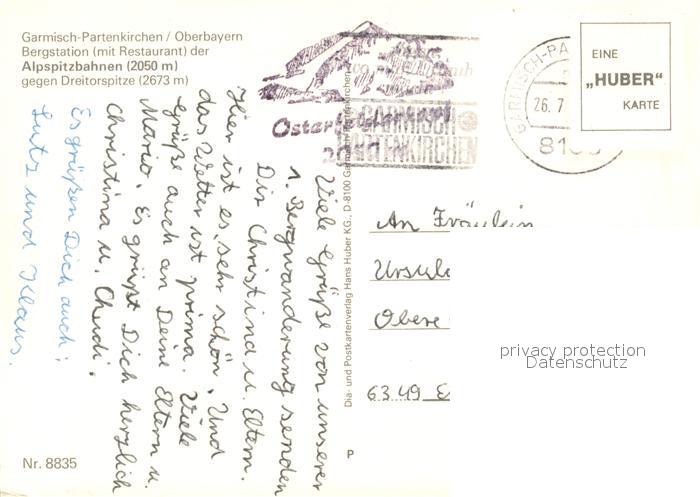 Garmisch-Partenkirchen / Oberbayern
Bergstation (mit Restaurant) der
Alpspitzbahnen (2050 m)
gegen Dreitorspitze (2673 m)
Viele Grüße von unserer
1. Bergwanderung senden
Dir Christina u. Eltern.
Hier ist es sehr schön. Und
das Wetter ist prima. Viele
Grüße auch an Deine Eltern u.
Mario. Es grüßt Dich herzlich
Christina u.
Es grüßen Dich auch:
Lutz und Klaus.
Nr. 8835
GARMISCH
PARTENKIRCHEN
GARMISCH-PA
26. 7
EINE
„HUBER“
KARTE
Dia- und Postkartenverlag Hans Huber KG., D-8100 Garmisch-Partenkirchen
P
An Fräulein
Ursula
Obere
6349
privacy protection
Datenschutz